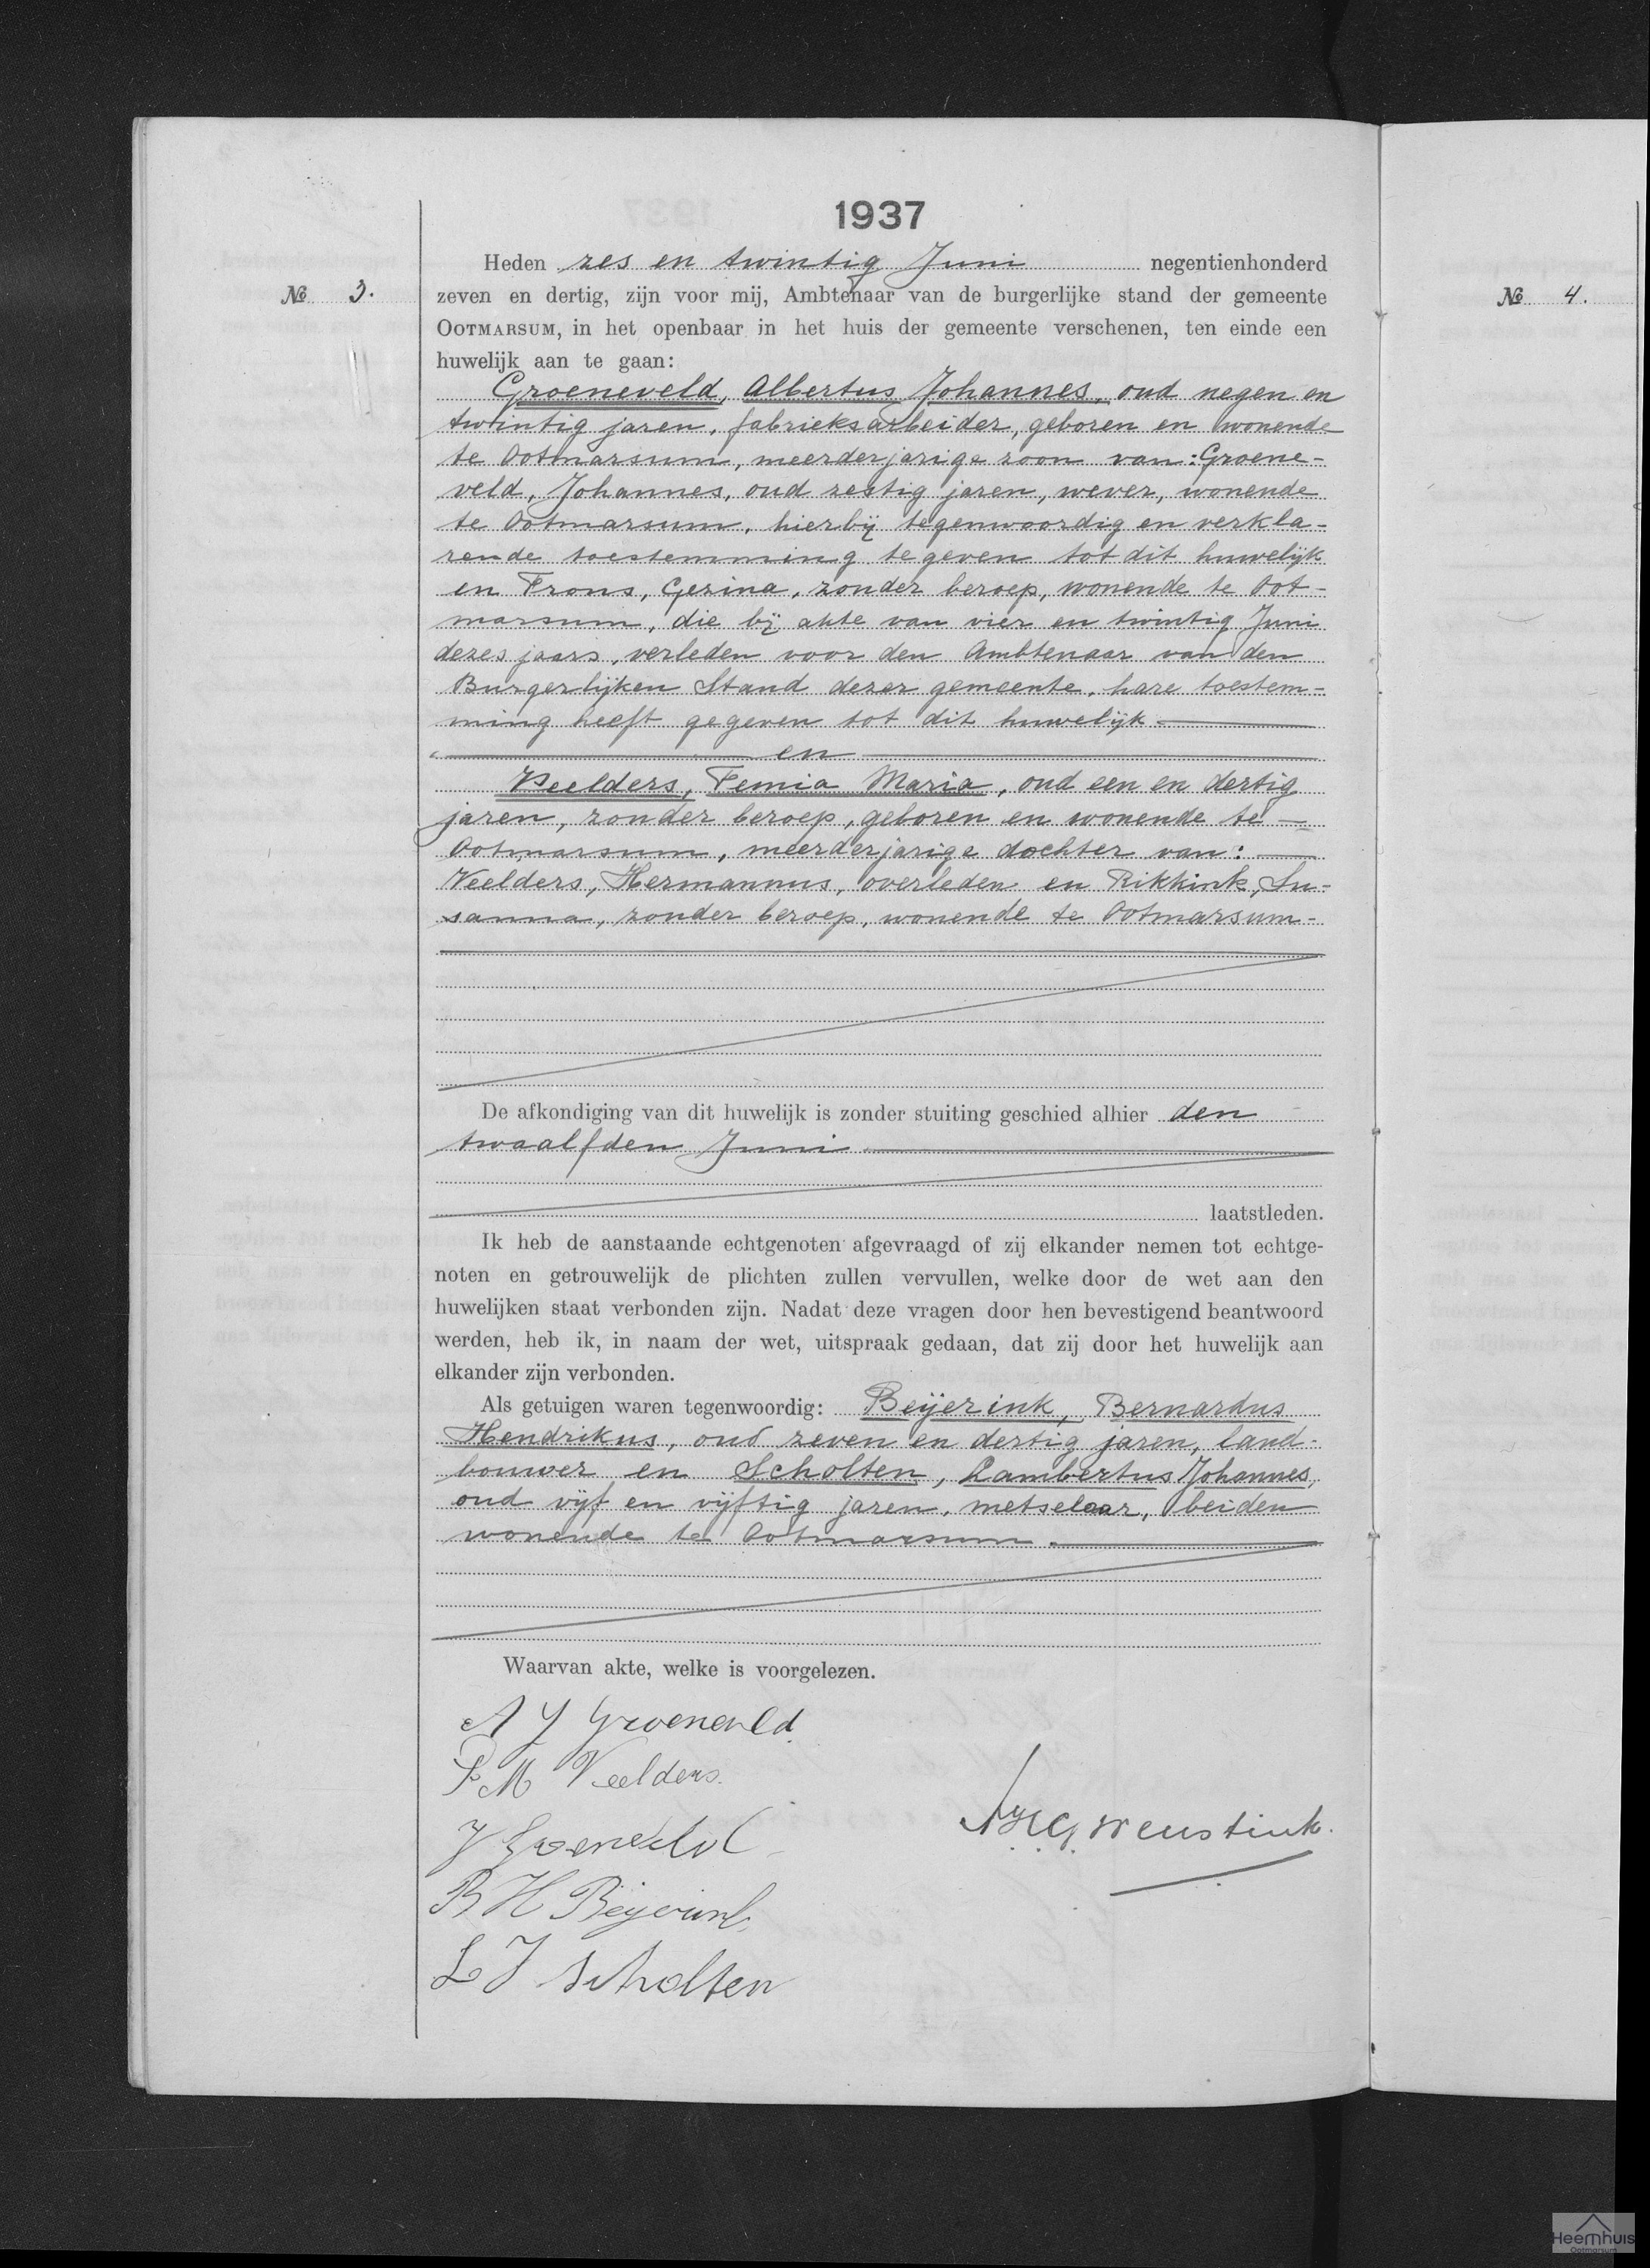 1937
Heden zes en twintig Juni negentienhonderd
№ 3.
zeven en dertig, zijn voor mij, Ambtenaar van de burgerlijke stand der gemeente
OOTMARSUM, in het openbaar in het huis der gemeente verschenen, ten einde een
huwelijk aan te gaan:
Groeneveld, Albertus Johannes, oud negen en
twintig jaren, fabrieksarbeider, geboren en wonende
te Ootmarsum, meerderjarige zoon van: Groene-
veld, Johannes, oud zestig jaren, wever, wonende
te Ootmarsum, hierbij tegenwoordig en verkla-
rende toestemming te geven tot dit huwelijk
en Frons, Gezina, zonder beroep, wonende te Oot-
marsum, die bij akte van vier en twintig Juni
dezes jaars, verleden voor den Ambtenaar van den
Burgerlijken Stand dezer gemeente, hare toestem-
ming heeft gegeven tot dit huwelijk
en
Veelders, Femia Maria, oud een en dertig
jaren, zonder beroep, geboren en wonende te
Ootmarsum, meerderjarige dochter van:
Veelders, Hermannus, overleden en Rikkink, Su-
sanna, zonder beroep, wonende te Ootmarsum
De afkondiging van dit huwelijk is zonder stuiting geschied alhier den
twaalfden Juni
laatstleden.
Ik heb de aanstaande echtgenoten afgevraagd of zij elkander nemen tot echtge-
noten en getrouwelijk de plichten zullen vervullen, welke door de wet aan den
huwelijken staat verbonden zijn. Nadat deze vragen door hen bevestigend beantwoord
werden, heb ik, in naam der wet, uitspraak gedaan, dat zij door het huwelijk aan
elkander zijn verbonden.
Als getuigen waren tegenwoordig: Beijerink, Bernardus
Hendrikus, oud zeven en dertig jaren, land-
bouwer en Scholten, Lambertus Johannes,
oud vijf en vijftig jaren, metselaar, beiden
wonende te Ootmarsum.
Waarvan akte, welke is voorgelezen.
A J Groeneveld
F M Veelders.
J Groeneveld
B H Beijerink
L J Scholten
Weustink.
№ 4.
Heemhuis
Ootmarsum